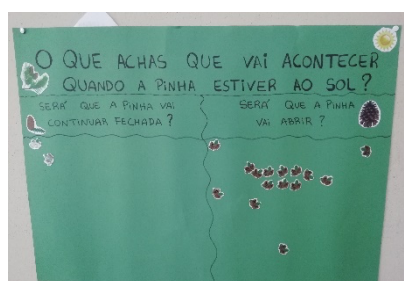 O QUE ACHAS QUE VAI ACONTECER
QUANDO A PINHA ESTIVER AO SOL?
SERÁ QUE A PINHA VAI
CONTINUAR FECHADA?
SERÁ QUE A PINHA
VAI ABRIR?